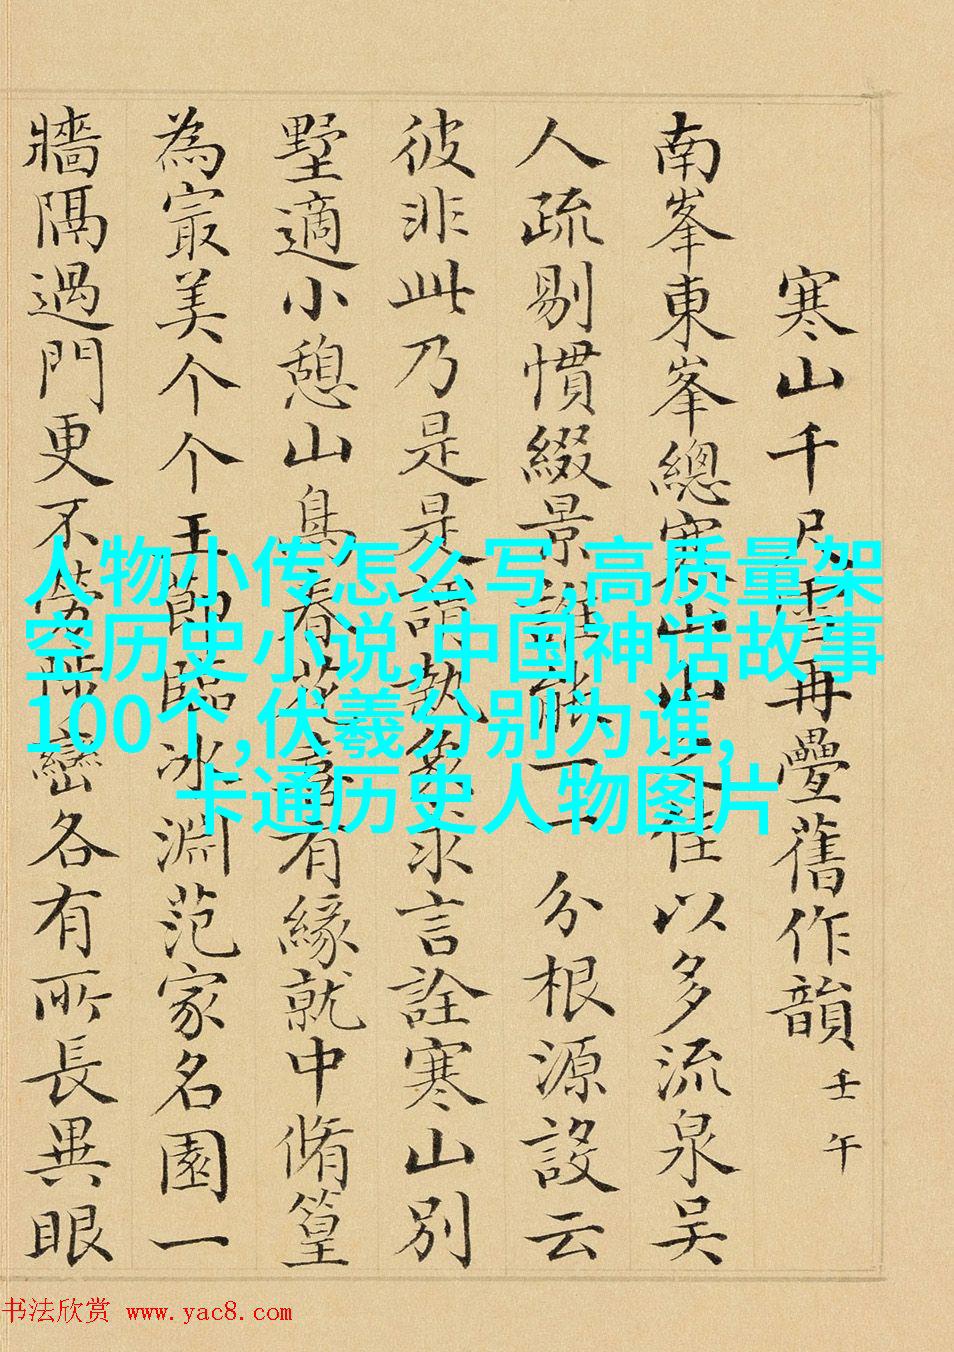 寒山千尺雪再疊舊作韻 壬午
南峯東峯總寒山山之佳以多流泉吴
人疏剔慣綴景誰能一一分根源設云
彼非此乃是是謂執象求言詮寒山別
墅適小憩山鳥春花意有緣就中脩篁
為㝡美个个玉節臨冰淵范家名園一
牆隔過門更不勞陟巒各有所長異眼
人物小传怎么写,高质量架
空历史小说,中国神话故事
100个,伏羲分别为谁,
卡通历史人物图片
书法欣赏 www.yac8.com